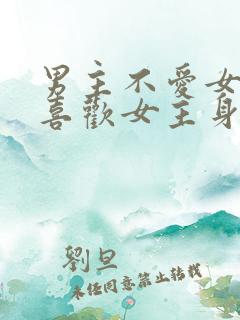 男主不愛女
喜歡女主身
劉旦
未任同意禁止转載